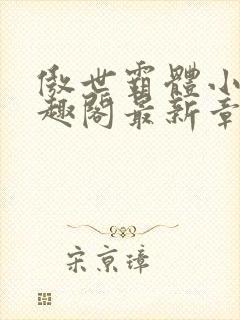 傲世霸體小
趣閣最新章
宋京璋